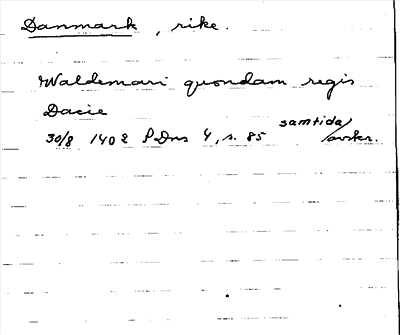 Danmark, rike.
Waldemari quondam regis
Dacie
30/8 1402 SDns 4, s. 85 samtida avskr.